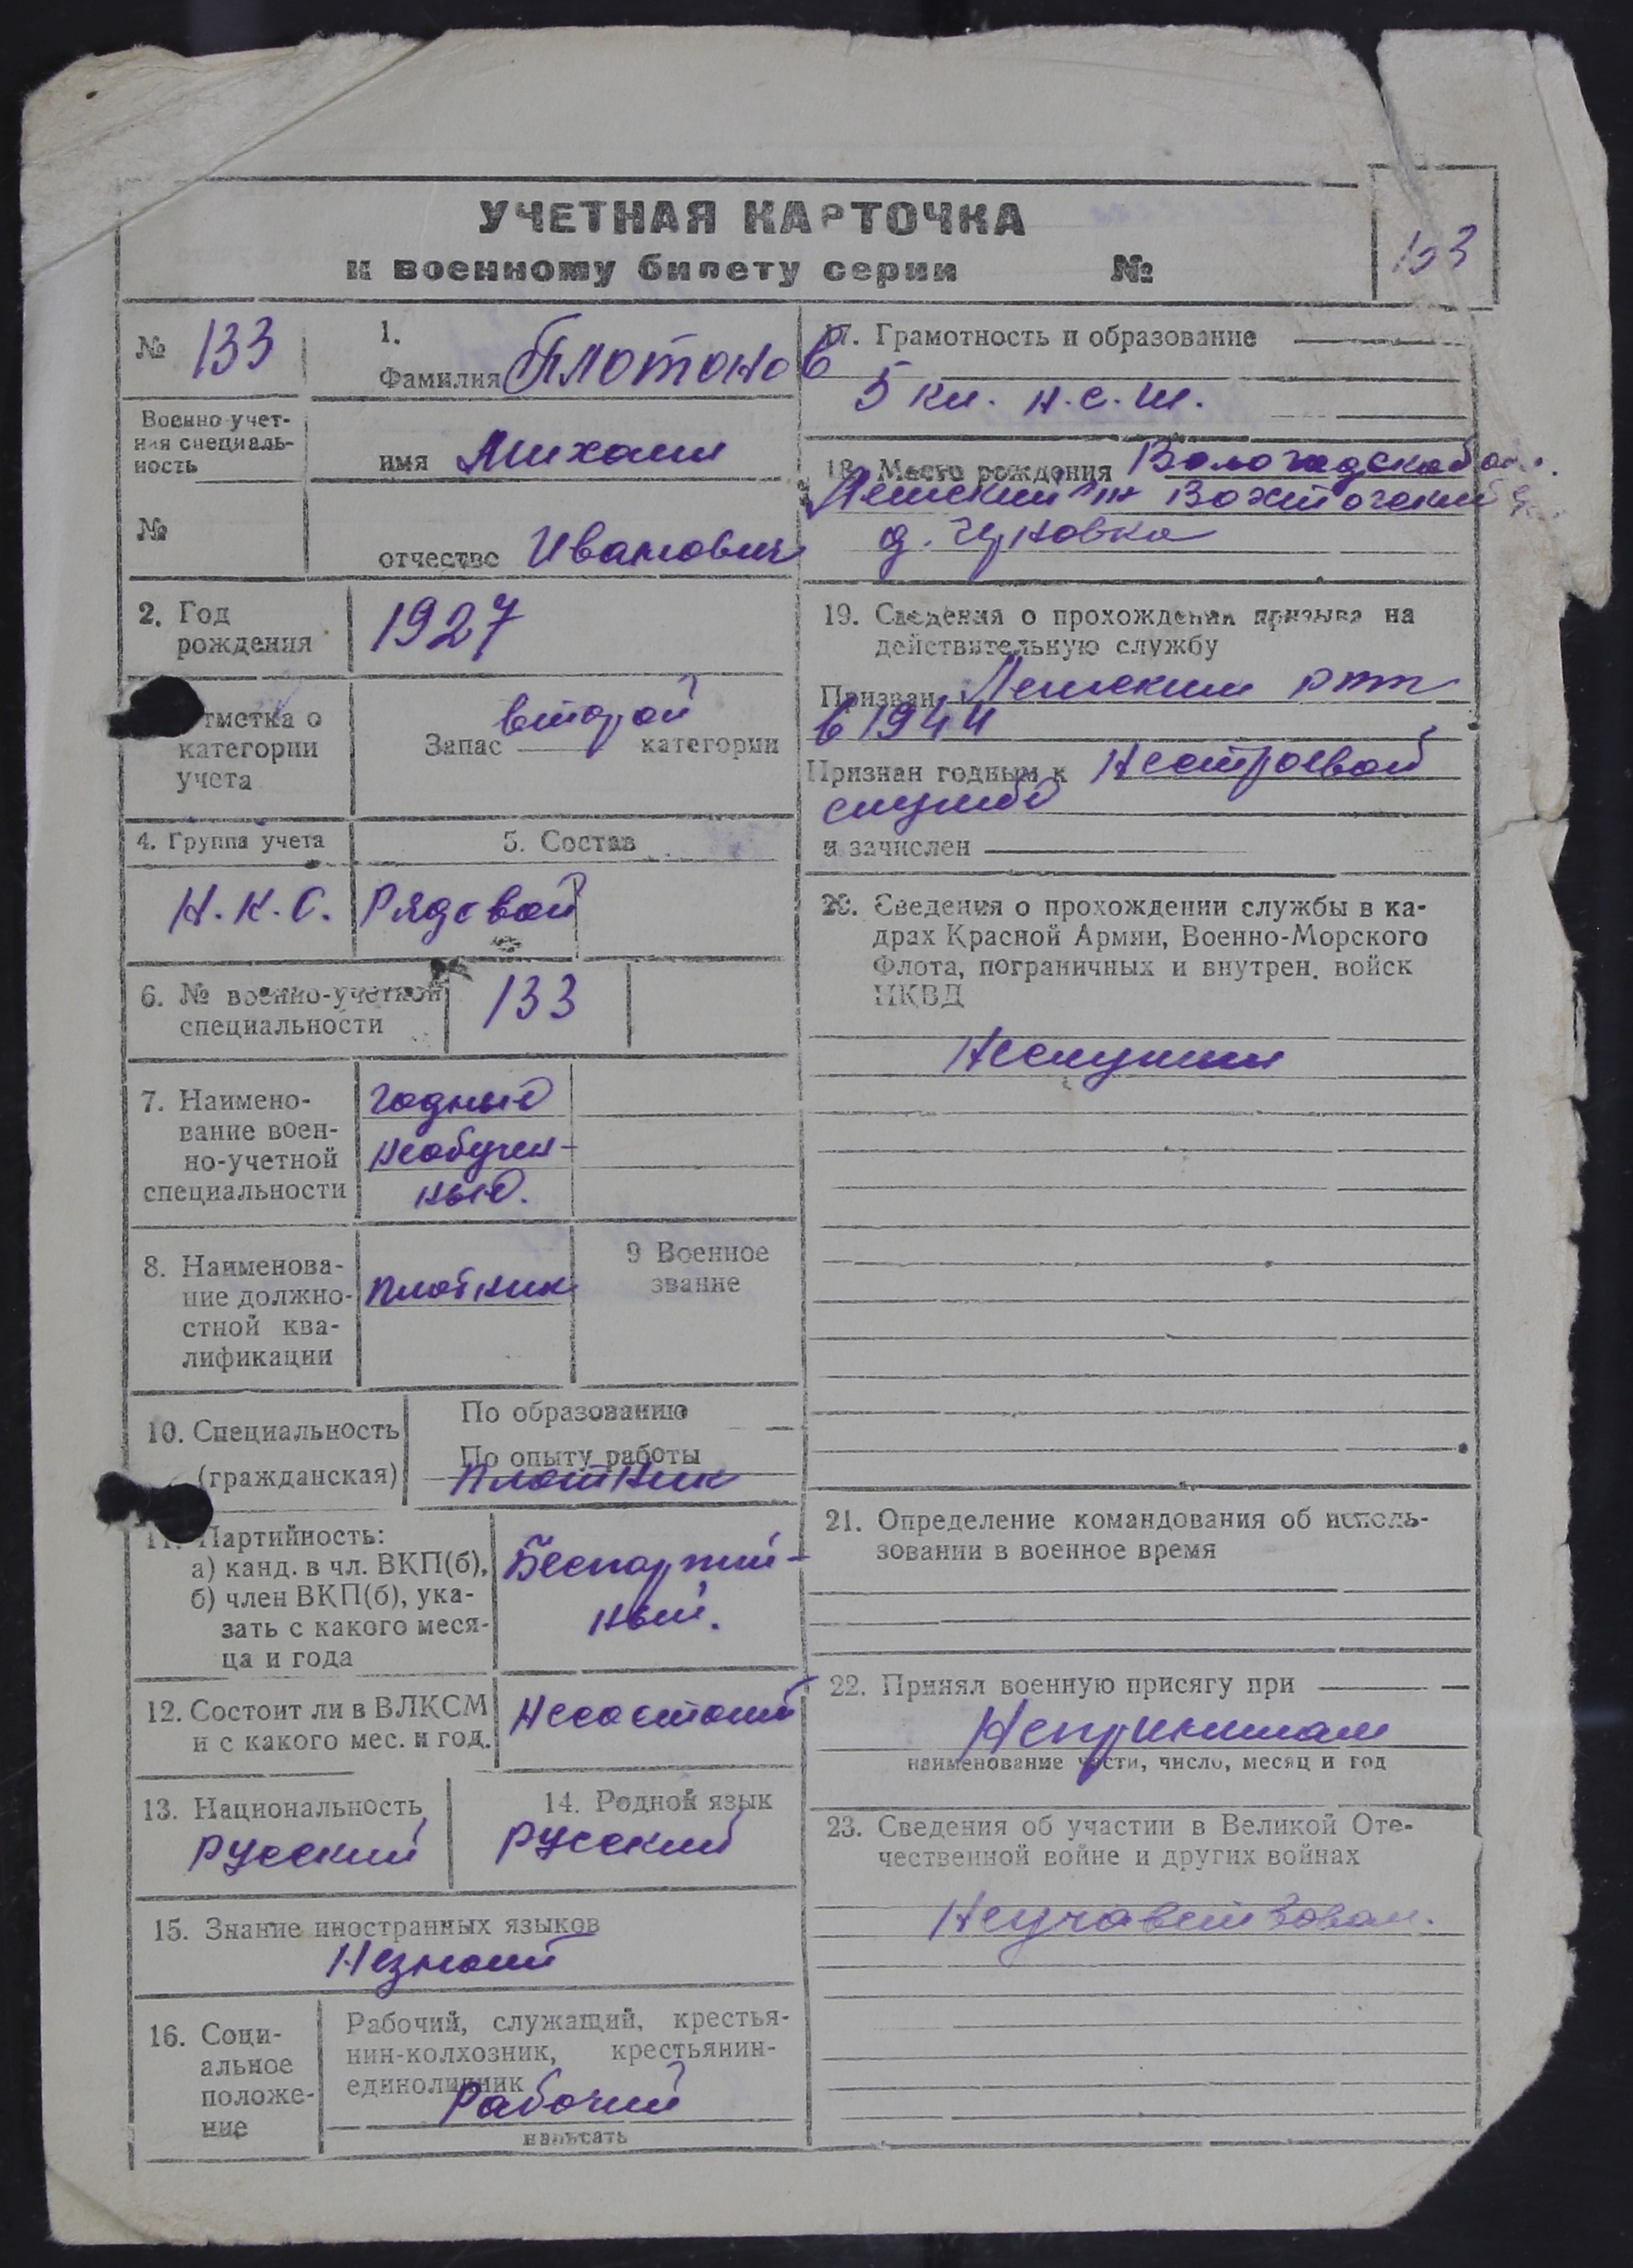 УЧЕТНАЯ КАРТОЧКА
к военному билету серии №
133
№ 133
1.
Фамилия Плотонов
Военно-учет-
ная специаль-
ность
имя Михаил
№
отчество Иванович
2. Год
рождения
1927
отметка о
категории
учета
Запас второй категории
4. Группа учета
Н.К.О.
5. Состав
Рядовой
6. № военно-учетной
специальности
133
7. Наимено-
вание воен-
но-учетной
специальности
годный
необучен-
ный.
8. Наименова-
ние должно-
стной ква-
лификации
плотник
9 Военное
звание
10. Специальность
(гражданская)
По образованию
По опыту работы
плотник
11. Партийность:
а) канд. в чл. ВКП(б),
б) член ВКП(б), ука-
зать с какого меся-
ца и года
Беспартий-
ный.
12. Состоит ли в ВЛКСМ
и с какого мес. и год.
Несостоит
13. Национальность
Русский
14. Родной язык
Русский
15. Знание иностранных языков
Незнает
16. Соци-
альное
положе-
ние
Рабочий, служащий, крестья-
нин-колхозник, крестьянин-
единоличник
Рабочий
написать
17. Грамотность и образование
5 кл. н.с.ш.
18. Место рождения Вологодская
д. Чуновка
19. Сведения о прохождении призыва на
действительную службу
Призван
в 1944
Признан годным к нестроевой
службе
и зачислен
20. Сведения о прохождении службы в ка-
драх Красной Армии, Военно-Морского
Флота, пограничных и внутрен. войск
НКВД
Неслужил
21. Определение командования об исполь-
зовании в военное время
22. Принял военную присягу при
Непринимал
наименование части, число, месяц и год
23. Сведения об участии в Великой Оте-
чественной войне и других войнах
Неучавствовал.